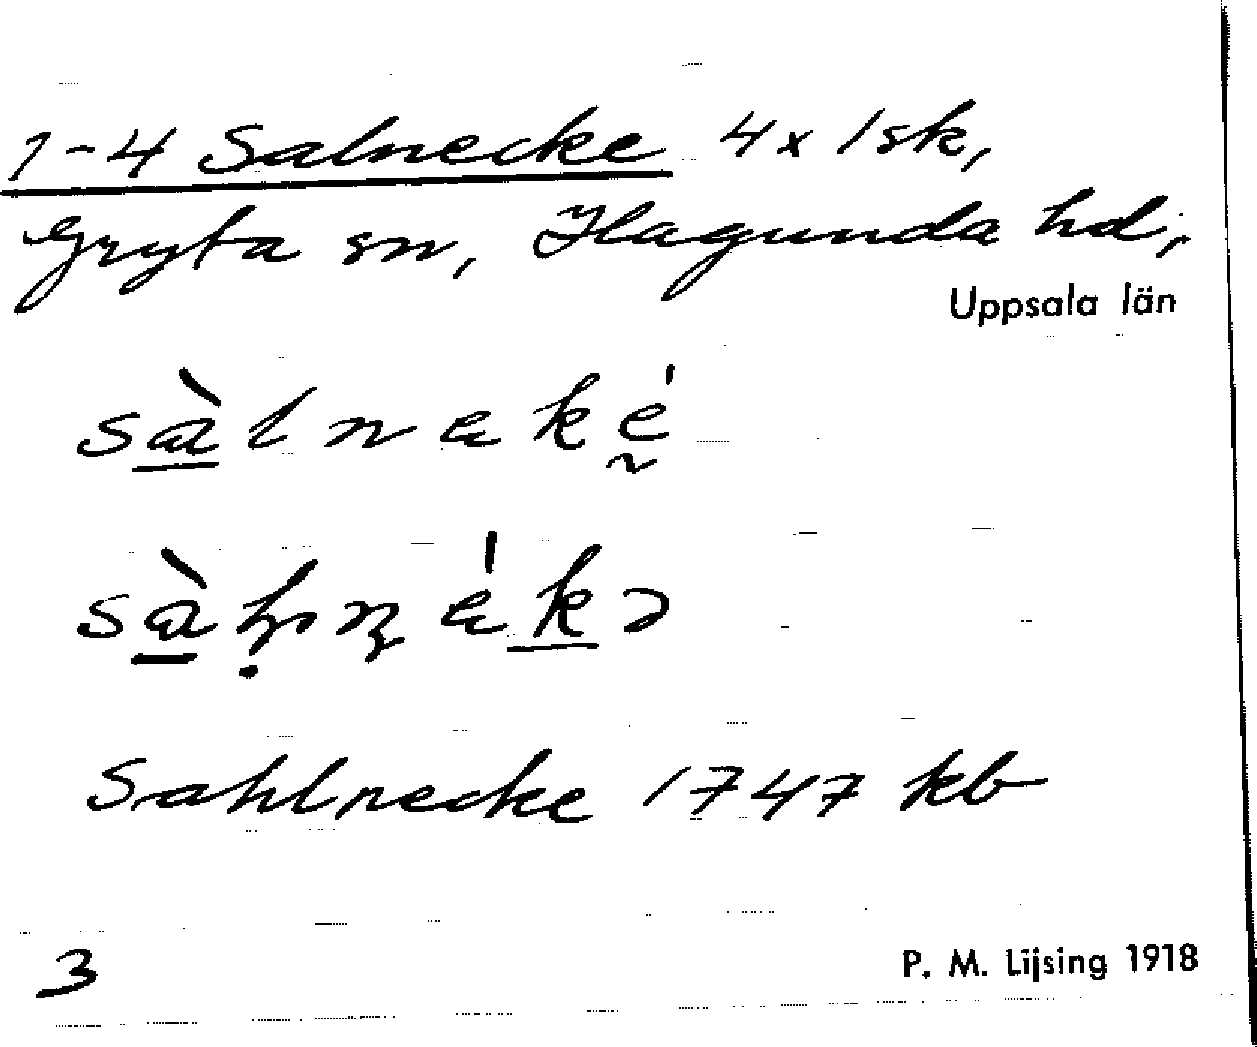 1-4 Salnecke 4 x 1 sk,
Gryta sn, Hagunda hd,
Uppsala län
Sahlnecke 1747 kb
3
P. M. Lijsing 1918